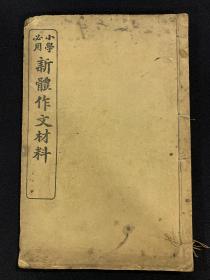 小學必用
新體作文材料